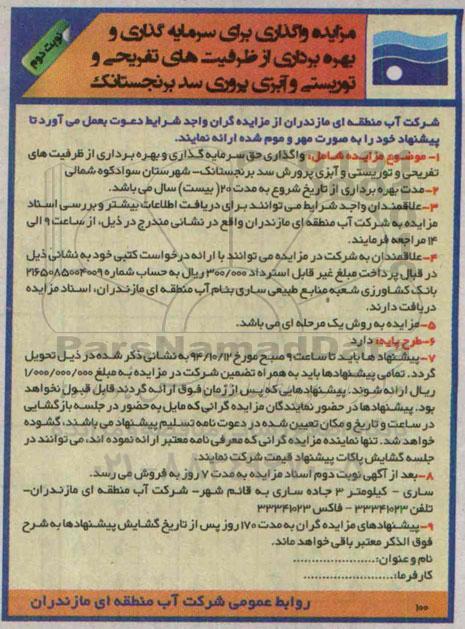 مزایده واگذاری برای سرمایه گذاری و
بهره برداری از ظرفیت های تفریحی و
توریستی و آبزی پروری سد برنجستانک
نوبت دوم
شرکت آب منطقه ای مازندران از مزایده گران واجد شرایط دعوت بعمل می آورد تا
پیشنهاد خود را به صورت مهر و موم شده ارائه نمایند.
۱- موضوع مزایده شامل: واگذاری حق سرمایه گذاری و بهره برداری از ظرفیت های
تفریحی و توریستی و آبزی پرورش سد برنجستانک- شهرستان سوادکوه شمالی
۲- مدت بهره برداری از تاریخ شروع به مدت ۲۰( بیست) سال می باشد.
۳- علاقمندان واجد شرایط می توانند برای دریافت اطلاعات بیشتر و بررسی اسناد
مزایده به شرکت آب منطقه ای مازندران واقع در نشانی مندرج در ذیل، از ساعت ۹ الی
۱۴ مراجعه فرمایند.
۴- علاقمندان به شرکت در مزایده می توانند با ارائه درخواست کتبی خود به نشانی ذیل
در قبال پرداخت مبلغ غیر قابل استرداد ۳۰۰/۰۰۰ ریال به حساب شماره ۲۱۶۵۰۸۵۰۰۴۰۰۹
بانک کشاورزی شعبه منابع طبیعی ساری بنام آب منطقه ای مازندران، اسناد مزایده
دریافت دارند.
۵- مزایده به روش یک مرحله ای می باشد.
۶- طرح پایه: دارد
۷- پیشنهاد ها باید تا ساعت ۹ صبح مورخ ۹۴/۱۰/۱۲ به نشانی ذکر شده در ذیل تحویل
گردد. تمامی پیشنهادها باید به همراه تضمین شرکت در مزایده به مبلغ ۱/۰۰۰/۰۰۰/۰۰۰
ریال ارائه شوند. پیشنهادهایی که پس از زمان فوق ارائه گردند قابل قبول نخواهد
بود. پیشنهادها در حضور نمایندگان مزایده گرانی که مایل به حضور در جلسه بازگشایی
در ساعت و تاریخ و مکان تعیین شده در دعوت نامه تسلیم پیشنهاد می باشند، گشوده
خواهد شد. تنها نماینده مزایده گرانی که معرفی نامه معتبر ارائه نموده اند، می توانند در
جلسه گشایش پاکات پیشنهاد قیمت شرکت نمایند.
۸- بعد از آگهی نوبت دوم اسناد مزایده به مدت ۷ روز به فروش می رسد.
ساری - کیلومتر ۳ جاده ساری به قائم شهر- شرکت آب منطقه ای مازندران-
تلفن ۳۳۳۴۱۰۲۳ - فاکس ۳۳۳۴۱۰۲۳
۹- پیشنهادهای مزایده گران به مدت ۱۷۰ روز پس از تاریخ گشایش پیشنهادها به شرح
فوق الذکر معتبر باقی خواهد ماند.
نام و عنوان:........................
کارفرما:........................
روابط عمومی شرکت آب منطقه ای مازندران
۱۰۰
ParsNamadData